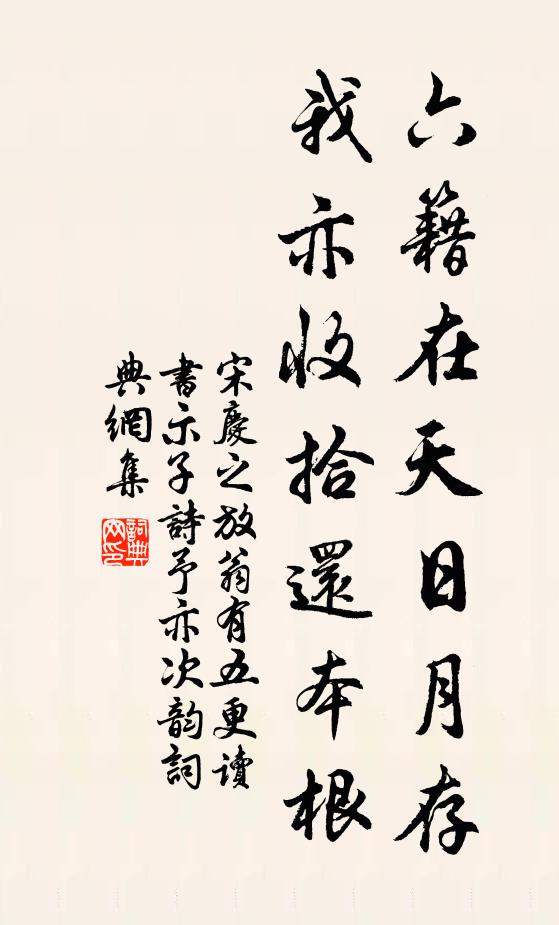 六籍在天日月存
我亦收拾還本根
宋慶之放翁有五更讀
書示子詩予亦次韵詞
典網集
詞典网印